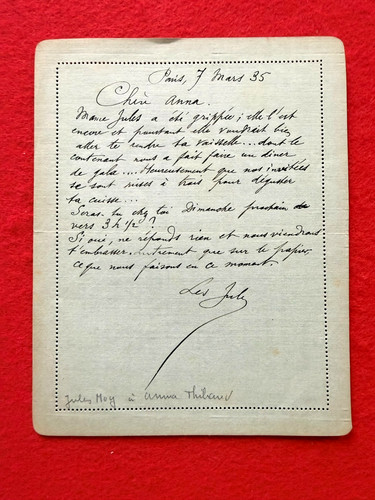 Paris, 7 Mars 35
Chère Anna.
Marie Jules a été grippée ; elle l'est
encore et pourtant elle voudrait bien
aller te rendre ta vaisselle... dont le
contenant nous a fait faire un dîner
de gala... Heureusement que nos invitées
se sont mises à trois pour déguster
ta cuisse...
Seras-tu chez toi Dimanche prochain
vers 3 h 1/2 ?
Si oui, ne réponds rien et nous viendrons
t'embrasser autrement que sur le papier
ce que nous faisons en ce moment.
Les Jules
Jules Moy à Anna Thibaud